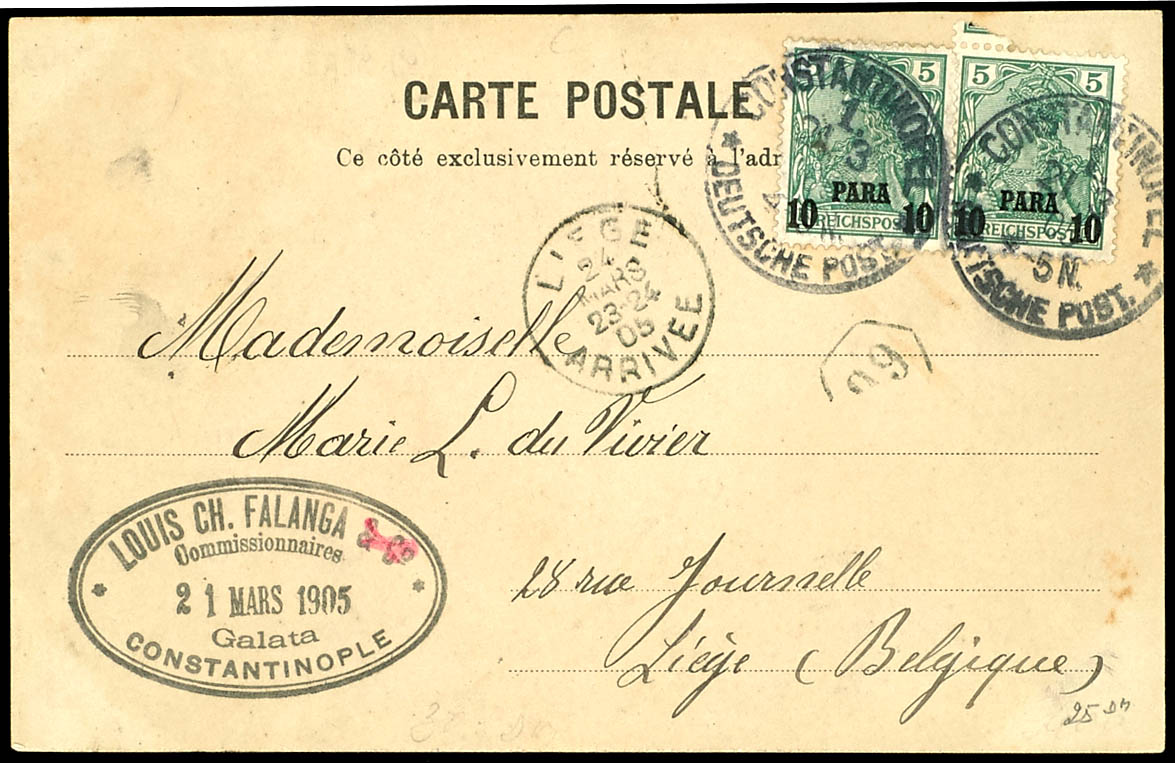 CARTE POSTALE
Ce côté exclusivement réservé à l'adr
5 5
PARA
10 10
REICHSPOST
5 5
PARA
10 10
REICHSPOST
CONSTANTINOPEL
1.
21 3
DEUTSCHE POST.
CONSTANTINOPEL
21 3
4-5 N.
DEUTSCHE POST.
LIEGE
24
MARS
23-24
05
ARRIVEE
99
Mademoiselle
Marie L. du Vivier
28 rue Journelle
Liége (Belgique)
LOUIS CH. FALANGA & Co
Commissionnaires
21 MARS 1905
Galata
CONSTANTINOPLE
25